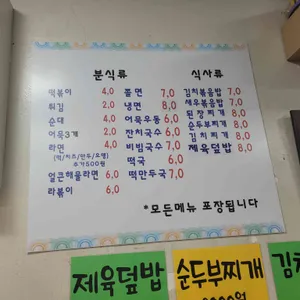 분식류
떡볶이 4,0
튀김 2,0
순대 4,0
어묵3개 2,0
라면 4,0
(떡/치즈/만두/오뎅)
추가500원
얼큰해물라면 6,0
라볶이 6,0
쫄면 7,0
냉면 8,0
어묵우동 6,0
잔치국수 6,0
비빔국수 7,0
떡국 6,0
떡만두국 7,0
식사류
김치볶음밥 7,0
새우볶음밥 7,0
된장찌개 8,0
순두부찌개 8,0
김치찌개 8,0
제육덮밥 8,0
*모든메뉴 포장됩니다
제육덮밥
순두부찌개
김치